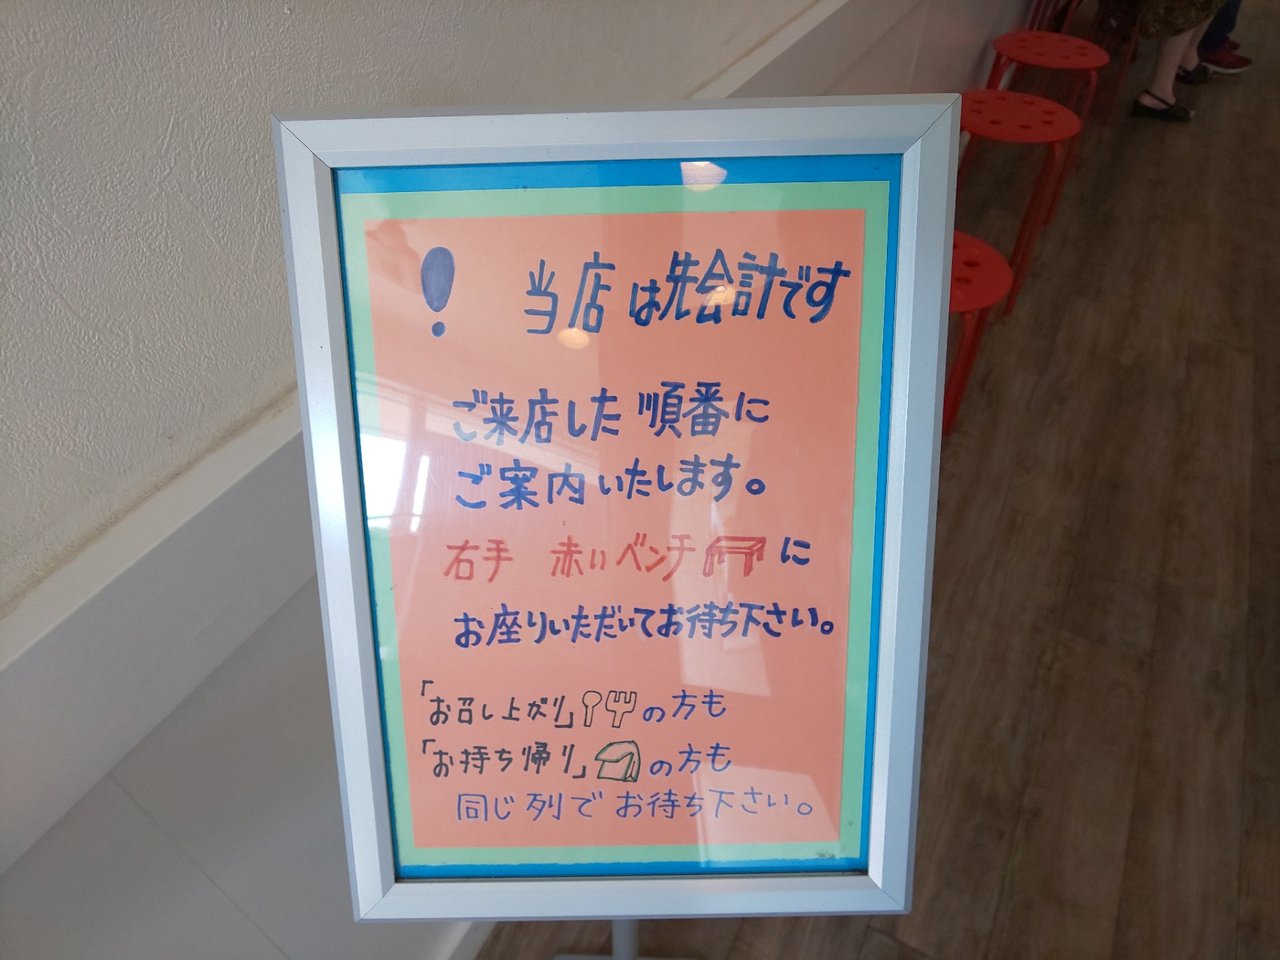 ! 当店は先会計です
ご来店した順番に
ご案内いたします。
右手 赤いベンチに
お座りいただいてお待ち下さい。
「お召し上がり」の方も
「お持ち帰り」の方も
同じ列でお待ち下さい。